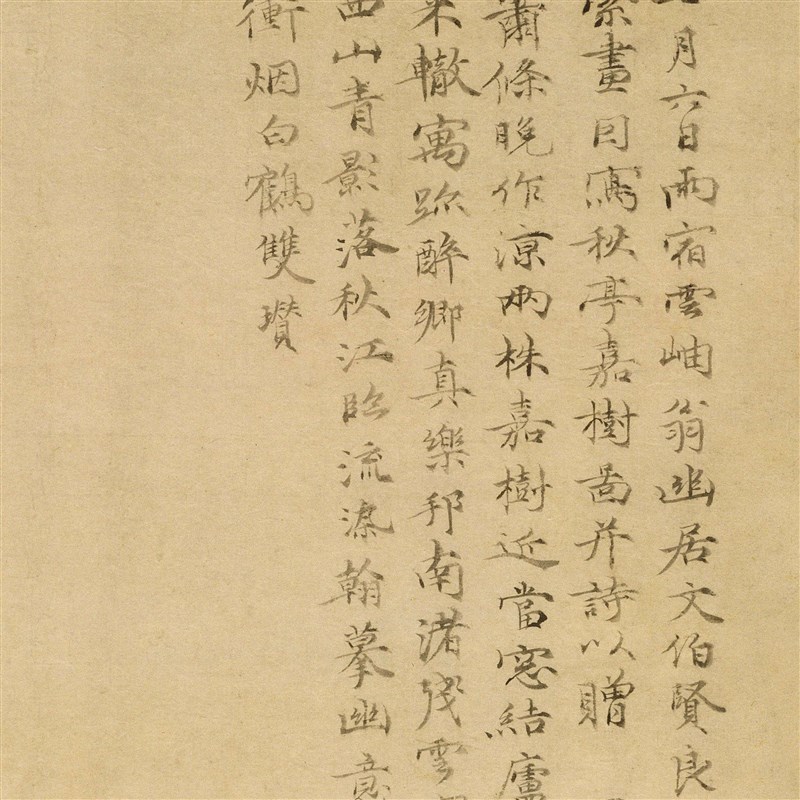 月六日雨宿雲岫翁幽居文伯賢良
索畫因寫秋亭嘉樹啚并詩以贈
肅條晚作涼兩株嘉樹近當窓結廬
來轍寓跡醉鄉真樂邦南渚殘雲
西山青影落秋江臨流染翰摹幽意
衝烟白鶴雙